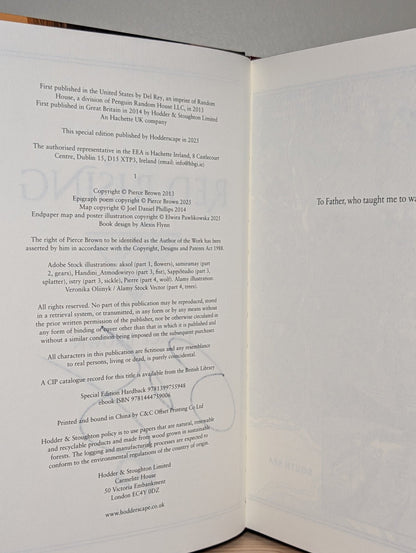 First published in the United States by Del Rey, an imprint of Random
House, a division of Penguin Random House LLC, in 2013
First published in Great Britain in 2014 by Hodder & Stoughton Limited
An Hachette UK company
This special edition published by Hodderscape in 2025
The authorised representative in the EEA is Hachette Ireland, 8 Castlecourt
Centre, Dublin 15, D15 XTP3, Ireland (email: info@hbgi.ie)
1
Copyright © Pierce Brown 2013
Epigraph poem copyright © Pierce Brown 2025
Map copyright © Joel Daniel Phillips 2014
Endpaper map and poster illustration copyright © Elwira Pawlikowska 2025
Book design by Alexis Flynn
The right of Pierce Brown to be identified as the Author of the Work has been
asserted by him in accordance with the Copyright, Designs and Patents Act 1988.
Adobe Stock illustrations: aksol (part 1, flowers), samiramay (part
2, gears), Handini_Atmodowiryo (part 3, fist), SappStudio (part 3,
splatter), istry (part 3, sickle), Pierre (part 4, wolf). Alamy illustration:
Veronika Oliinyk / Alamy Stock Vector (part 4, trees).
All rights reserved. No part of this publication may be reproduced, stored
in a retrieval system, or transmitted, in any form or by any means without
the prior written permission of the publisher, nor be otherwise circulated in
any form of binding or cover other than that in which it is published and
without a similar condition being imposed on the subsequent purchaser.
All characters in this publication are fictitious and any resemblance
to real persons, living or dead, is purely coincidental.
A CIP catalogue record for this title is available from the British Library
Special Edition Hardback 9781399755948
ebook ISBN 9781444759006
Printed and bound in China by C&C Offset Printing Co Ltd
Hodder & Stoughton policy is to use papers that are natural, renewable
and recyclable products and made from wood grown in sustainable
forests. The logging and manufacturing processes are expected to
conform to the environmental regulations of the country of origin.
Hodder & Stoughton Limited
Carmelite House
50 Victoria Embankment
London EC4Y 0DZ
www.hodderscape.co.uk
To Father, who taught me to wa